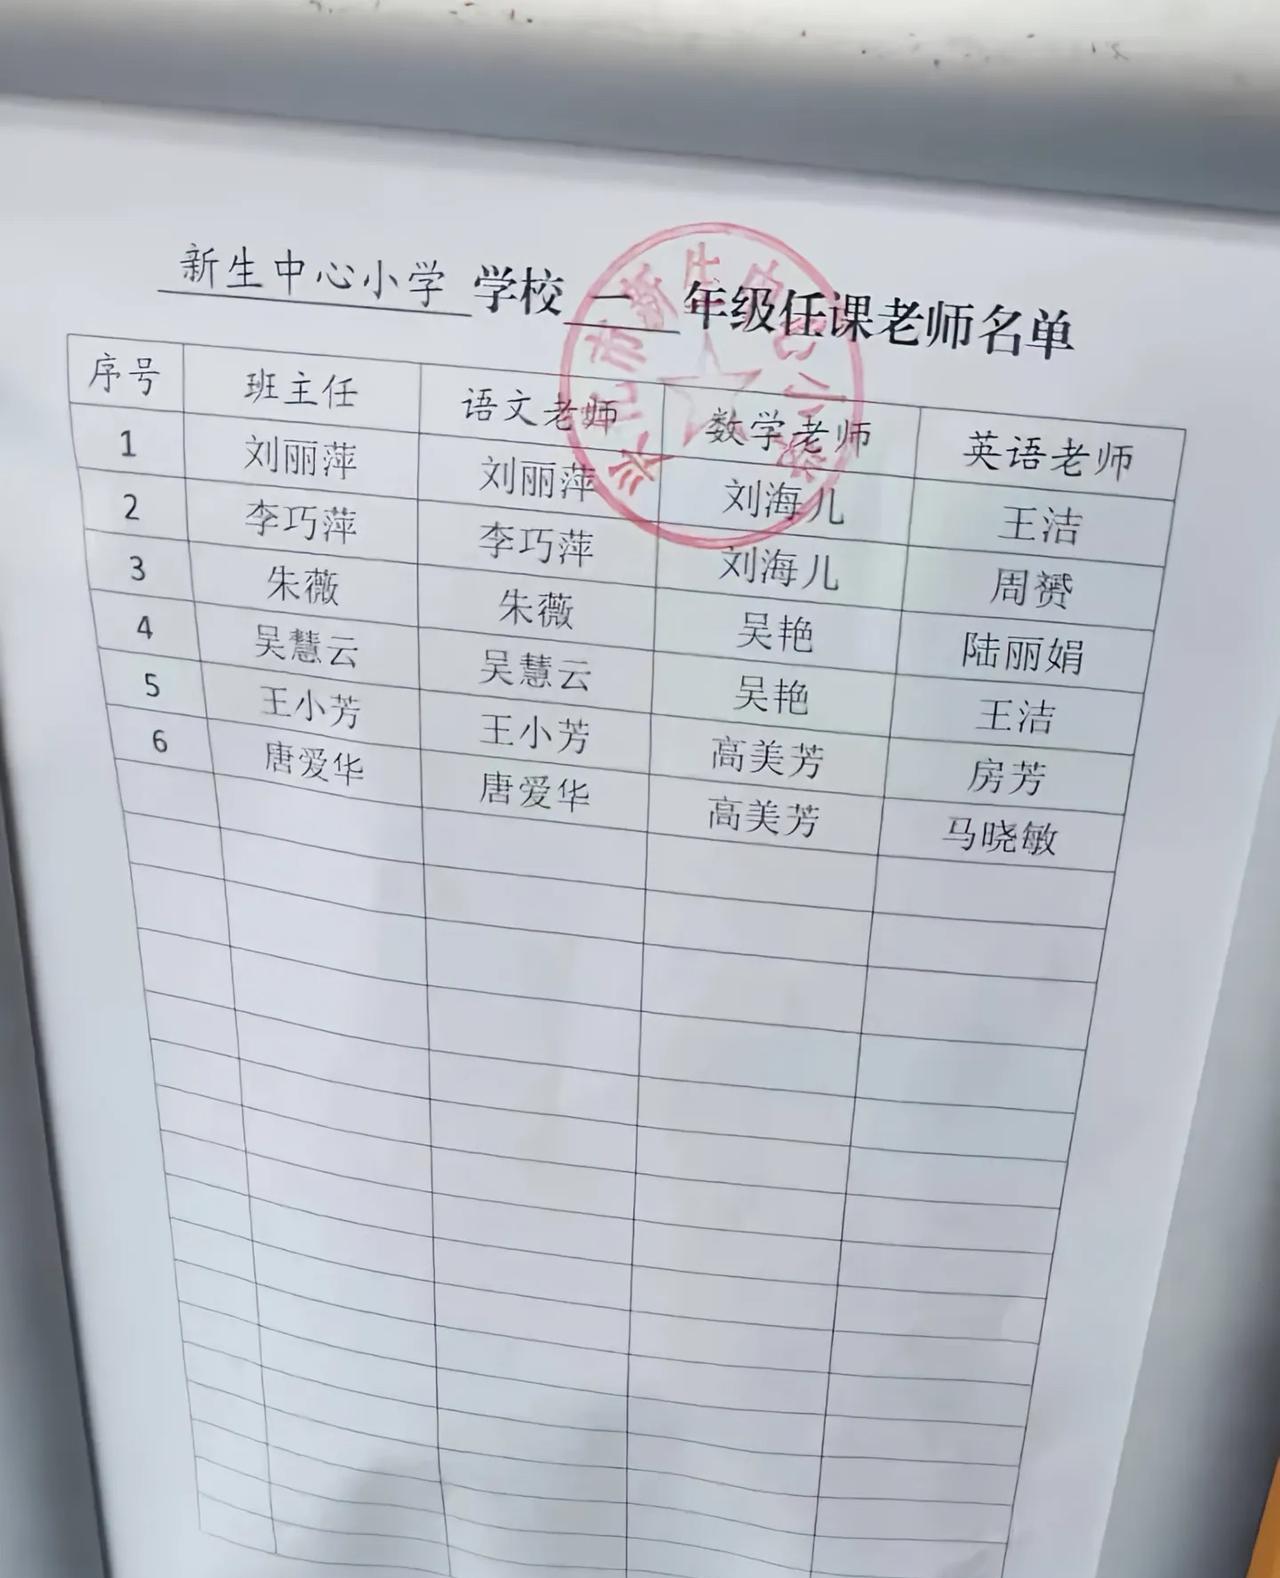 新生中心小学 学校 一 年级任课老师名单
序号 班主任 语文老师 数学老师 英语老师
1 刘丽萍 刘丽萍 刘海儿 王洁
2 李巧萍 李巧萍 刘海儿 周赟
3 朱薇 朱薇 吴艳 陆丽娟
4 吴慧云 吴慧云 吴艳 王洁
5 王小芳 王小芳 高美芳 房芳
6 唐爱华 唐爱华 高美芳 马晓敏